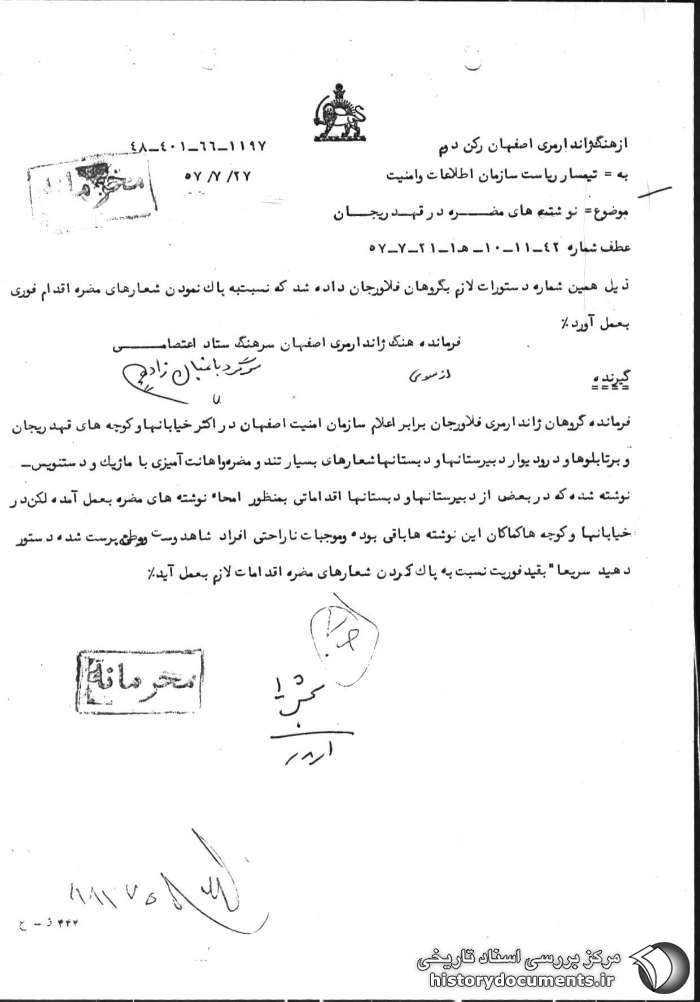 ازهنگ ژاندارمری اصفهان رکن دوم
۴۸-۴۰۱-۶۶-۱۱۹۷
به = تیمسار ریاست سازمان اطلاعات وامنیت
۵۷/۷/۲۷
محرمانه
موضوع = نوشته های مضره در قهدریجان
عطف شماره ۴۲-۱۱-۱۰-ه۱-۲۱-۷-۵۷
ذیل همین شماره دستورات لازم بگروهان فلاورجان داده شد که نسبت به پاک نمودن شعارهای مضره اقدام فوری
بعمل آورد٪
فرمانده هنگ ژاندارمری اصفهان سرهنگ ستاد اعتصامی
از سوی سرگرد باغبان زاده
گیرنده
فرمانده گروهان ژاندارمری فلاورجان برابر اعلام سازمان امنیت اصفهان در اکثر خیابانها و کوچه های قهدریجان
و برتابلوها و در و دیوار دبیرستانها و دبستانها شعارهای بسیار تند و مضره واهانت آمیزی با ماژیک و دستنویس-
نوشته شده که در بعضی از دبیرستانها و دبستانها اقداماتی بمنظور امحاء نوشته های مضره بعمل آمده لکن در
خیابانها و کوچه ها کماکان این نوشته ها باقی بوده وموجبات ناراحتی افراد شاهدوست ووطن پرست شده دستور
دهید سریعا" بقید فوریت نسبت به پاک کردن شعارهای مضره اقدامات لازم بعمل آید٪
محرمانه
بخش ۱
مرکز بررسی اسناد تاریخی
historydocuments.ir